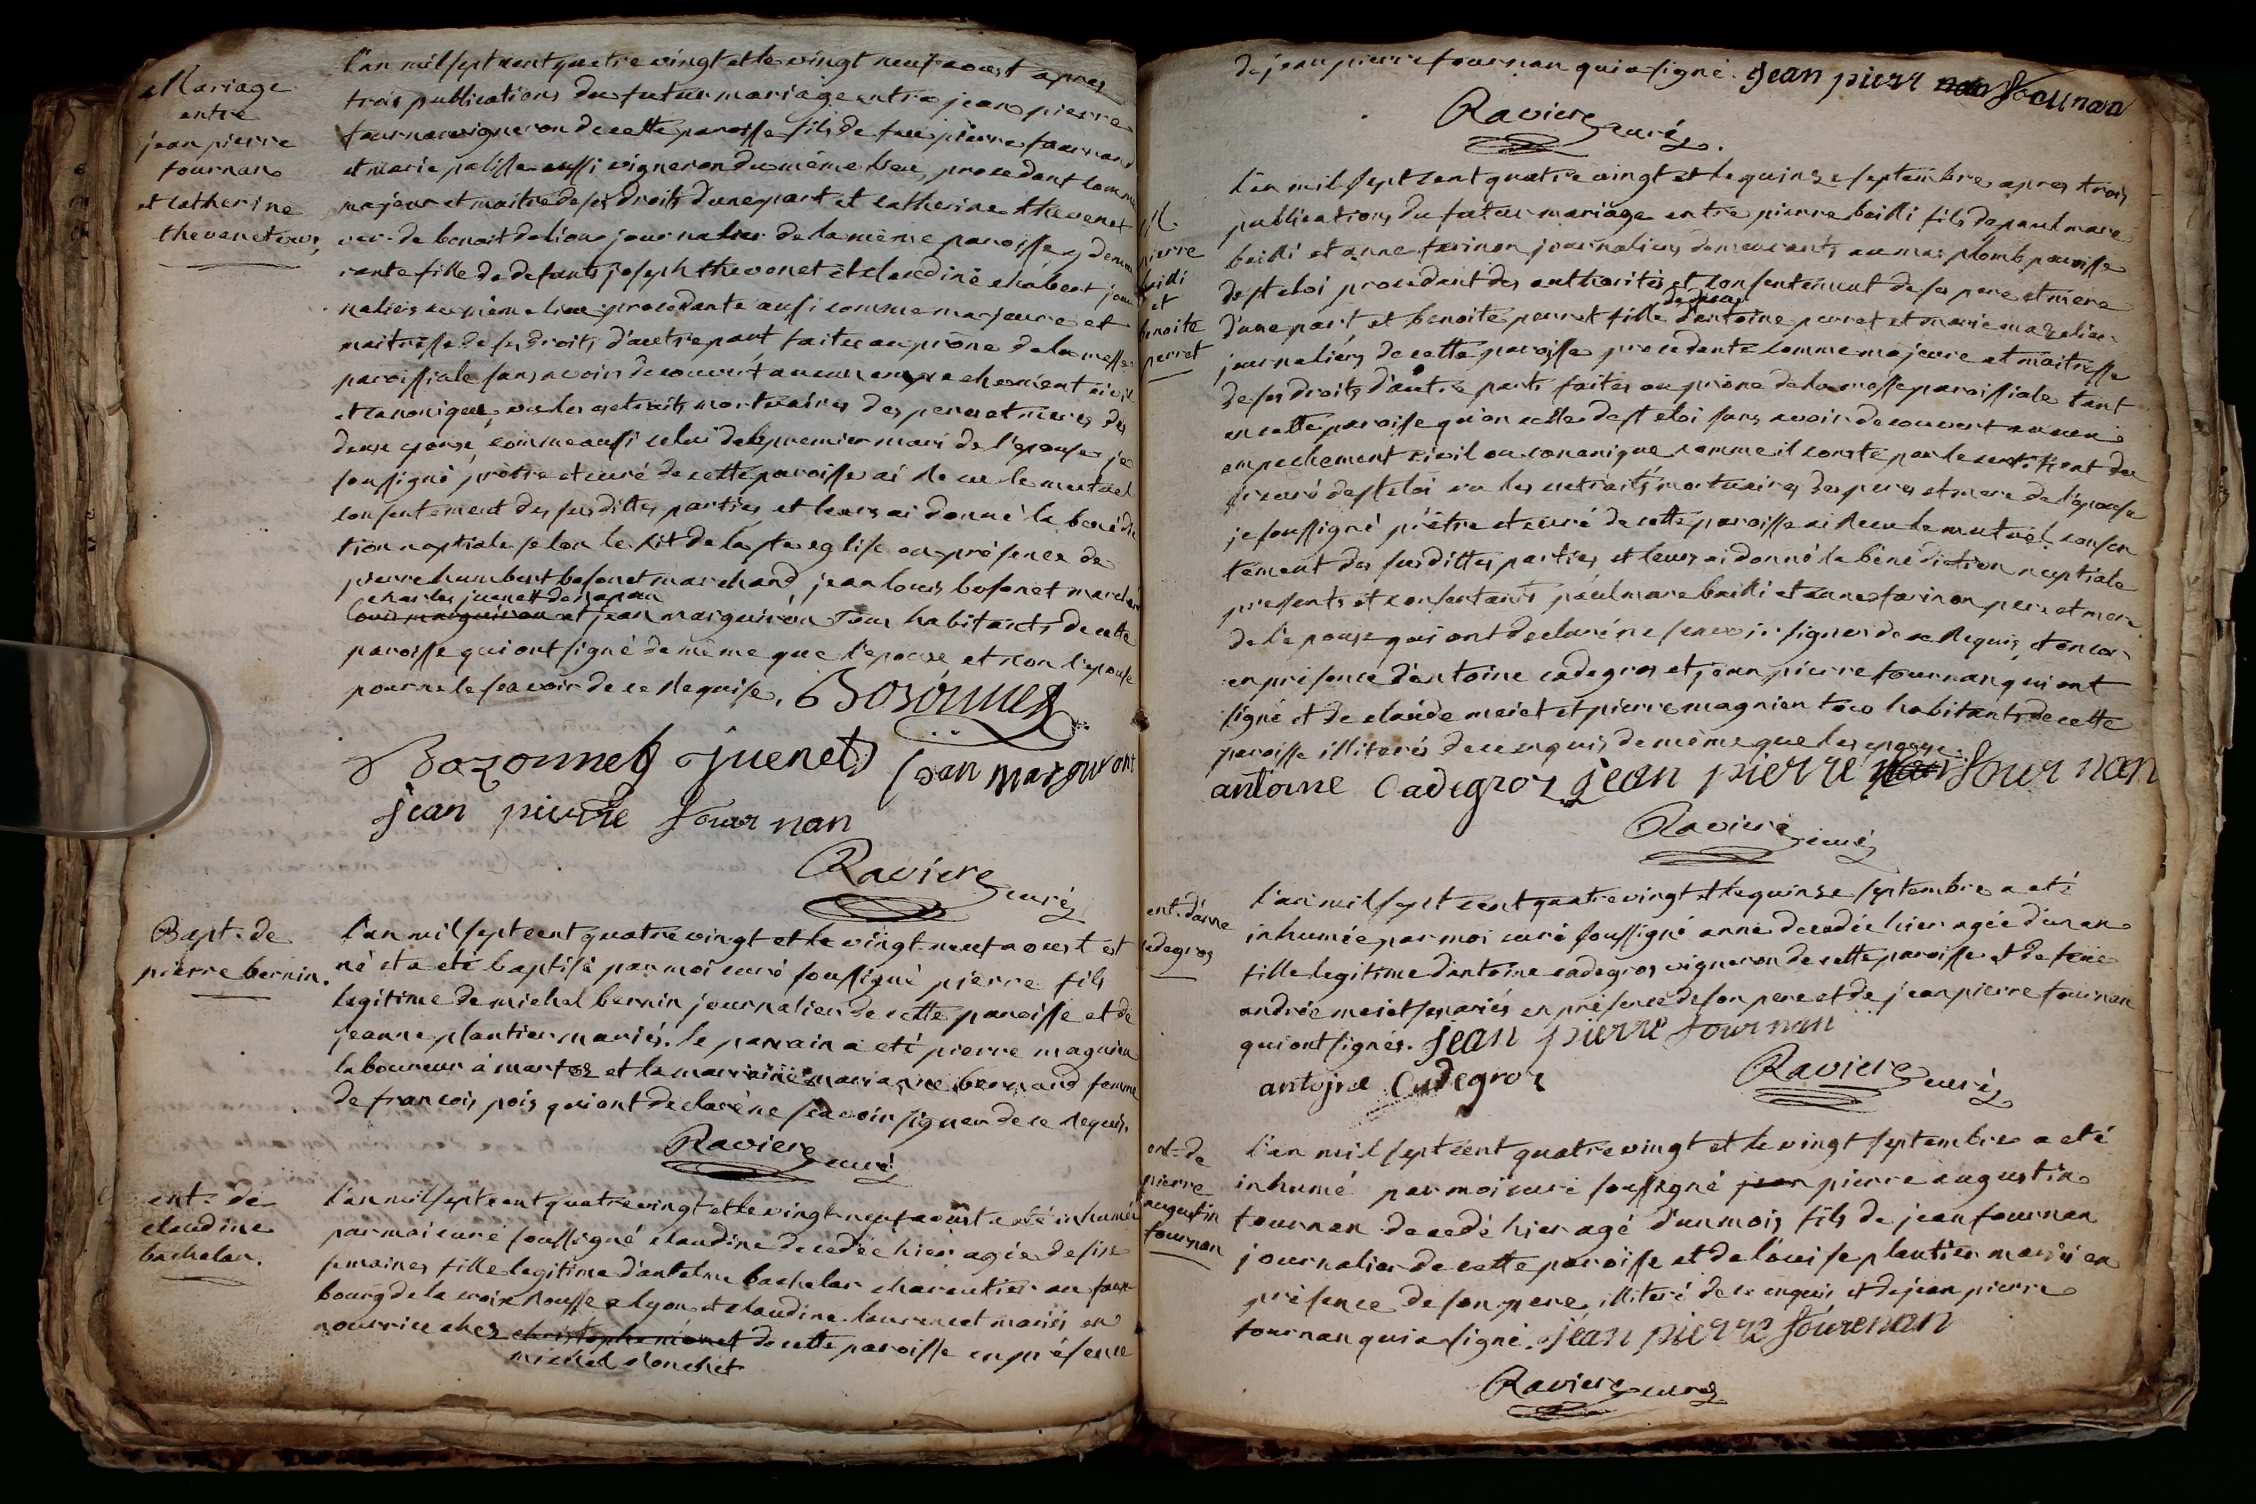 Mariage
entre
jean pierre
fournan
et catherine
thevenet
l'an mil sept cent quatre vingt et le vingt neuf aoust apres
trois publications du futur mariage entre jean pierre
fournan vigneron de cette paroisse fils de feu pierre fournan
et marie palisse aussi vigneron du même lieu, procedant comme
majeur et maitre de ses droits d'une part et catherine thevenet
de benoit journalier de la même paroisse y demeu
rante fille de defunts joseph thevenet et claudine chabert jour
naliers au même lieu procedante aussi comme majeure et
maitresse de ses droits d'autre part faites au prône de la messe
paroissiale sans avoir decouvert aucun empechement civil
et canonique, vu les extraits mortuaires des peres et meres des
deux epoux, comme aussi celui du premier mari de l'epouse je
soussigné prêtre et curé de cette paroisse ai reçu le mutuel
consentement des susdittes parties et leurs ai donné la benedic
tion nuptiale selon le rit de la ste eglise en présence de
pierre humbert bosonet marchand, jean louis bosonet marchand
charles juenet
et jean marguiron tous habitants de cette
paroisse qui ont signé de même que l'epoux et non l'epouse
pour ne le scavoir de ce requise. Bosonnet
Bozonnet Juenet jean margiront
jean pierre fournan
Raviere curé
Bapt. de
pierre bernin.
l'an mil sept cent quatre vingt et le vingt neuf aoust est
né et a eté baptisé par moi curé soussigné pierre fils
legitime de michel bernin journalier de cette paroisse et de
jeanne plantier mariés. le parrain a eté pierre magnien
laboureur à martoz et la marraine marianne bernard femme
de francois pois qui ont declaré ne scavoir signer de ce requis.
Raviere curé
ent. de
claudine
bachelar.
l'an mil sept cent quatre vingt et le vingt neuf aoust a eté inhumée
par moi curé soussigné claudine decedée hier agée de six
semaines fille legitime d'antelme bachelar charcutier au faux
bourg de la croix rousse a lyon et claudine laurencet mariés en
nourrice chez christophe de cette paroisse en présence
michel
de jean pierre fournan qui a signé. jean pierr fournan
Raviere curé.
M
pierre
bailli
et
benoite
perret
l'an mil sept cent quatre vingt et le quinze septembre apres trois
publications du futur mariage entre pierre bailli fils de paul marc
bailli et anne farinon journaliers demeurants au mas plomb paroisse
de st eloi procedant des authorités et consentement de ses pere et mere
de feu
d'une part et benoite perret fille d'antoine perret et marie mazelier
journaliers de cette paroisse procedante comme majeure et maitresse
de ses droits d'autre part. faites au prône de la messe paroissiale tant
en cette paroisse qu'en celle de st eloi sans avoir decouvert aucun
empechement civil ou canonique comme il conste par le certificat du
sr curé de st eloi vu les extraits mortuaires des pere et mere de l'epouse
je soussigné prêtre et curé de cette paroisse ai reçu le mutuel consen
tement des susdittes parties et leurs ai donné la bénédiction nuptiale
presents et consentants paul marc bailli et anne farinon pere et mere
de l'epoux qui ont declaré ne scavoir signer de ce requis, et encor
en présence d'antoine cadegros et jean pierre fournan qui ont
signé et de claude meiet et pierre magnien tous habitants de cette
paroisse illiterés de ce enquis de même que les epoux.
antoine Cadegroz jean pierre fournan
Raviere curé
ent. d'anne
cadegros
l'an mil sept cent quatre vingt et le quinze septembre a eté
inhumée par moi curé soussigné anne decedée hier agée d'un an
fille legitime d'antoine cadegros vigneron de cette paroisse et de feue
andrée meiet mariés en présence de son pere et de jean pierre fournan
qui ont signés. jean pierre fournan
antoine Cadegroz Raviere curé
ent. de
pierre
augustin
fournan
l'an mil sept cent quatre vingt et le vingt septembre a eté
inhumé par moi curé soussigné jean pierre augustin
fournan decedé hier agé d'un mois fils de jean fournan
journalier de cette paroisse et de louise plantier mariés en
présence de son pere illiteré de ce enquis et de jean pierre
fournan qui a signé. jean pierre fourenan
Raviere curé